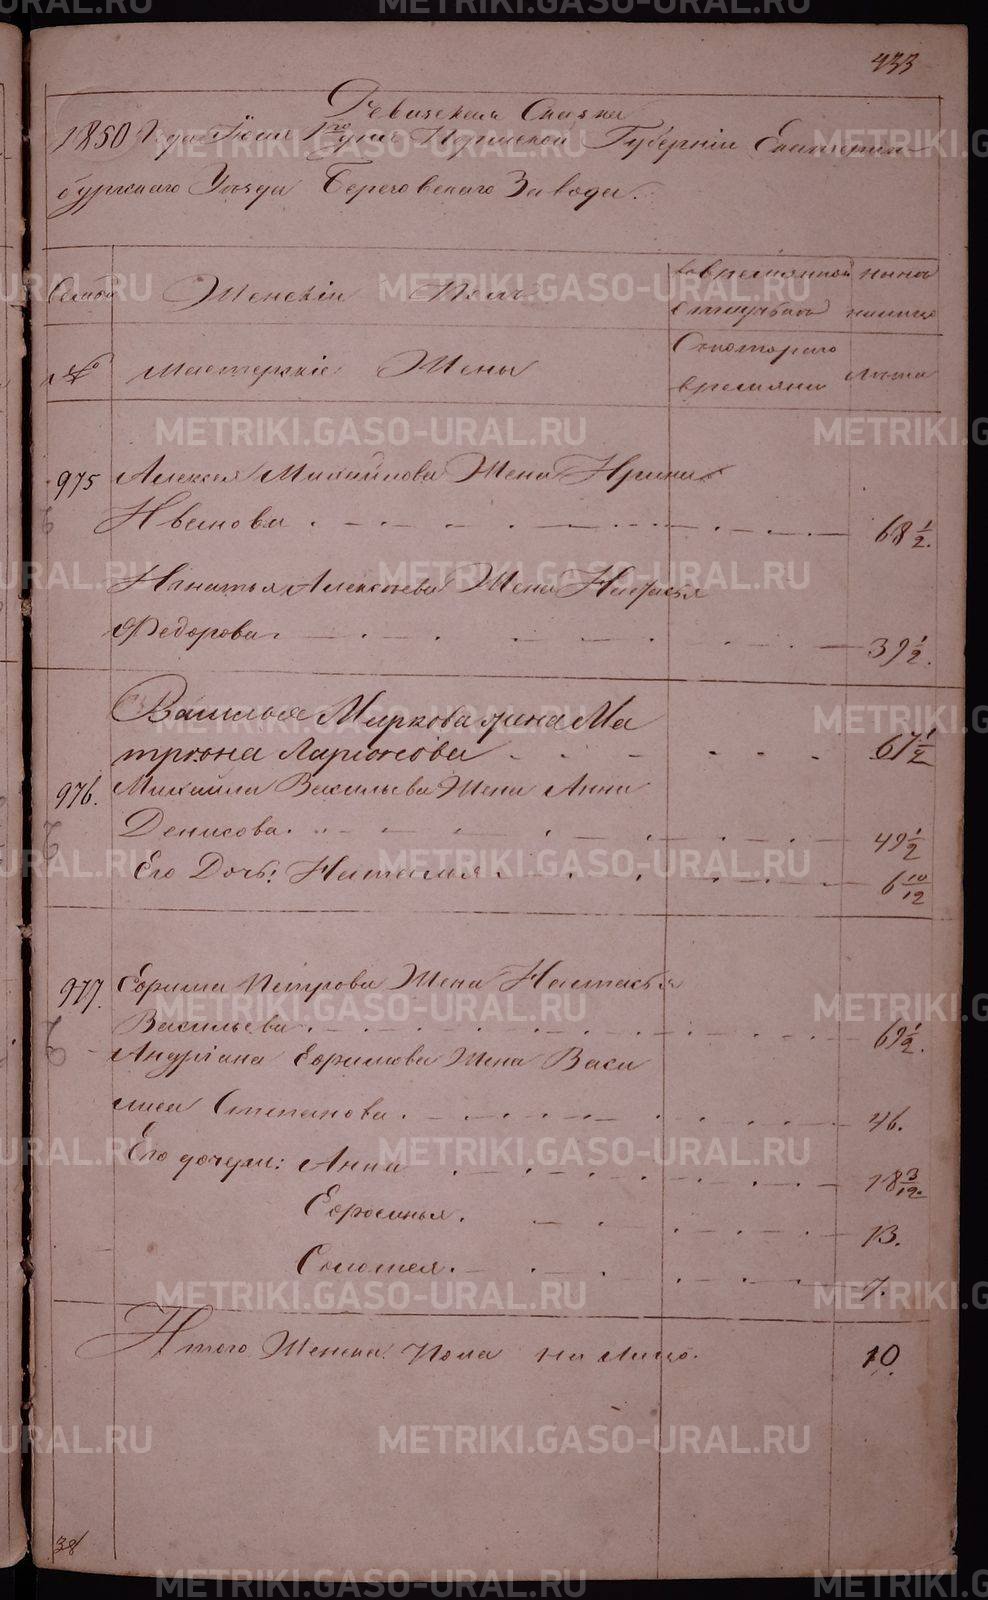 433
Ревизская Сказка
1850 Года Июня 1го дня Пермской Губернии Екатерин
бургского Уезда Березовского Завода.
Семьи Женский Полъ во временной ныне
отлучке налицо
№ Мастерские Жены С которого лета
времяни
975 Алексея Михайлова Жена Ирина
Иванова 68 1/2.
Игнатья Алексеева Жена Настасья
Федорова. 39 1/2.
Василья Маркова жена Ма
трона Ларионова 67 1/2
976. Михаила Васильева Жена Анна
Денисова. 49 1/2
Его Дочь: Наталья 6 10/12
977. Ефрима Петрова Жена Настасья
Васильева. 69 1/2.
Андриана Ефимова Жена Васи
лиса Степанова. 46.
Его дочери: Анна 18 3/12.
Ефросинья. 13.
Соломея. 7.
Итого Женска. Пола на лицо. 10
38
METRIKI.GASO-URAL.RU